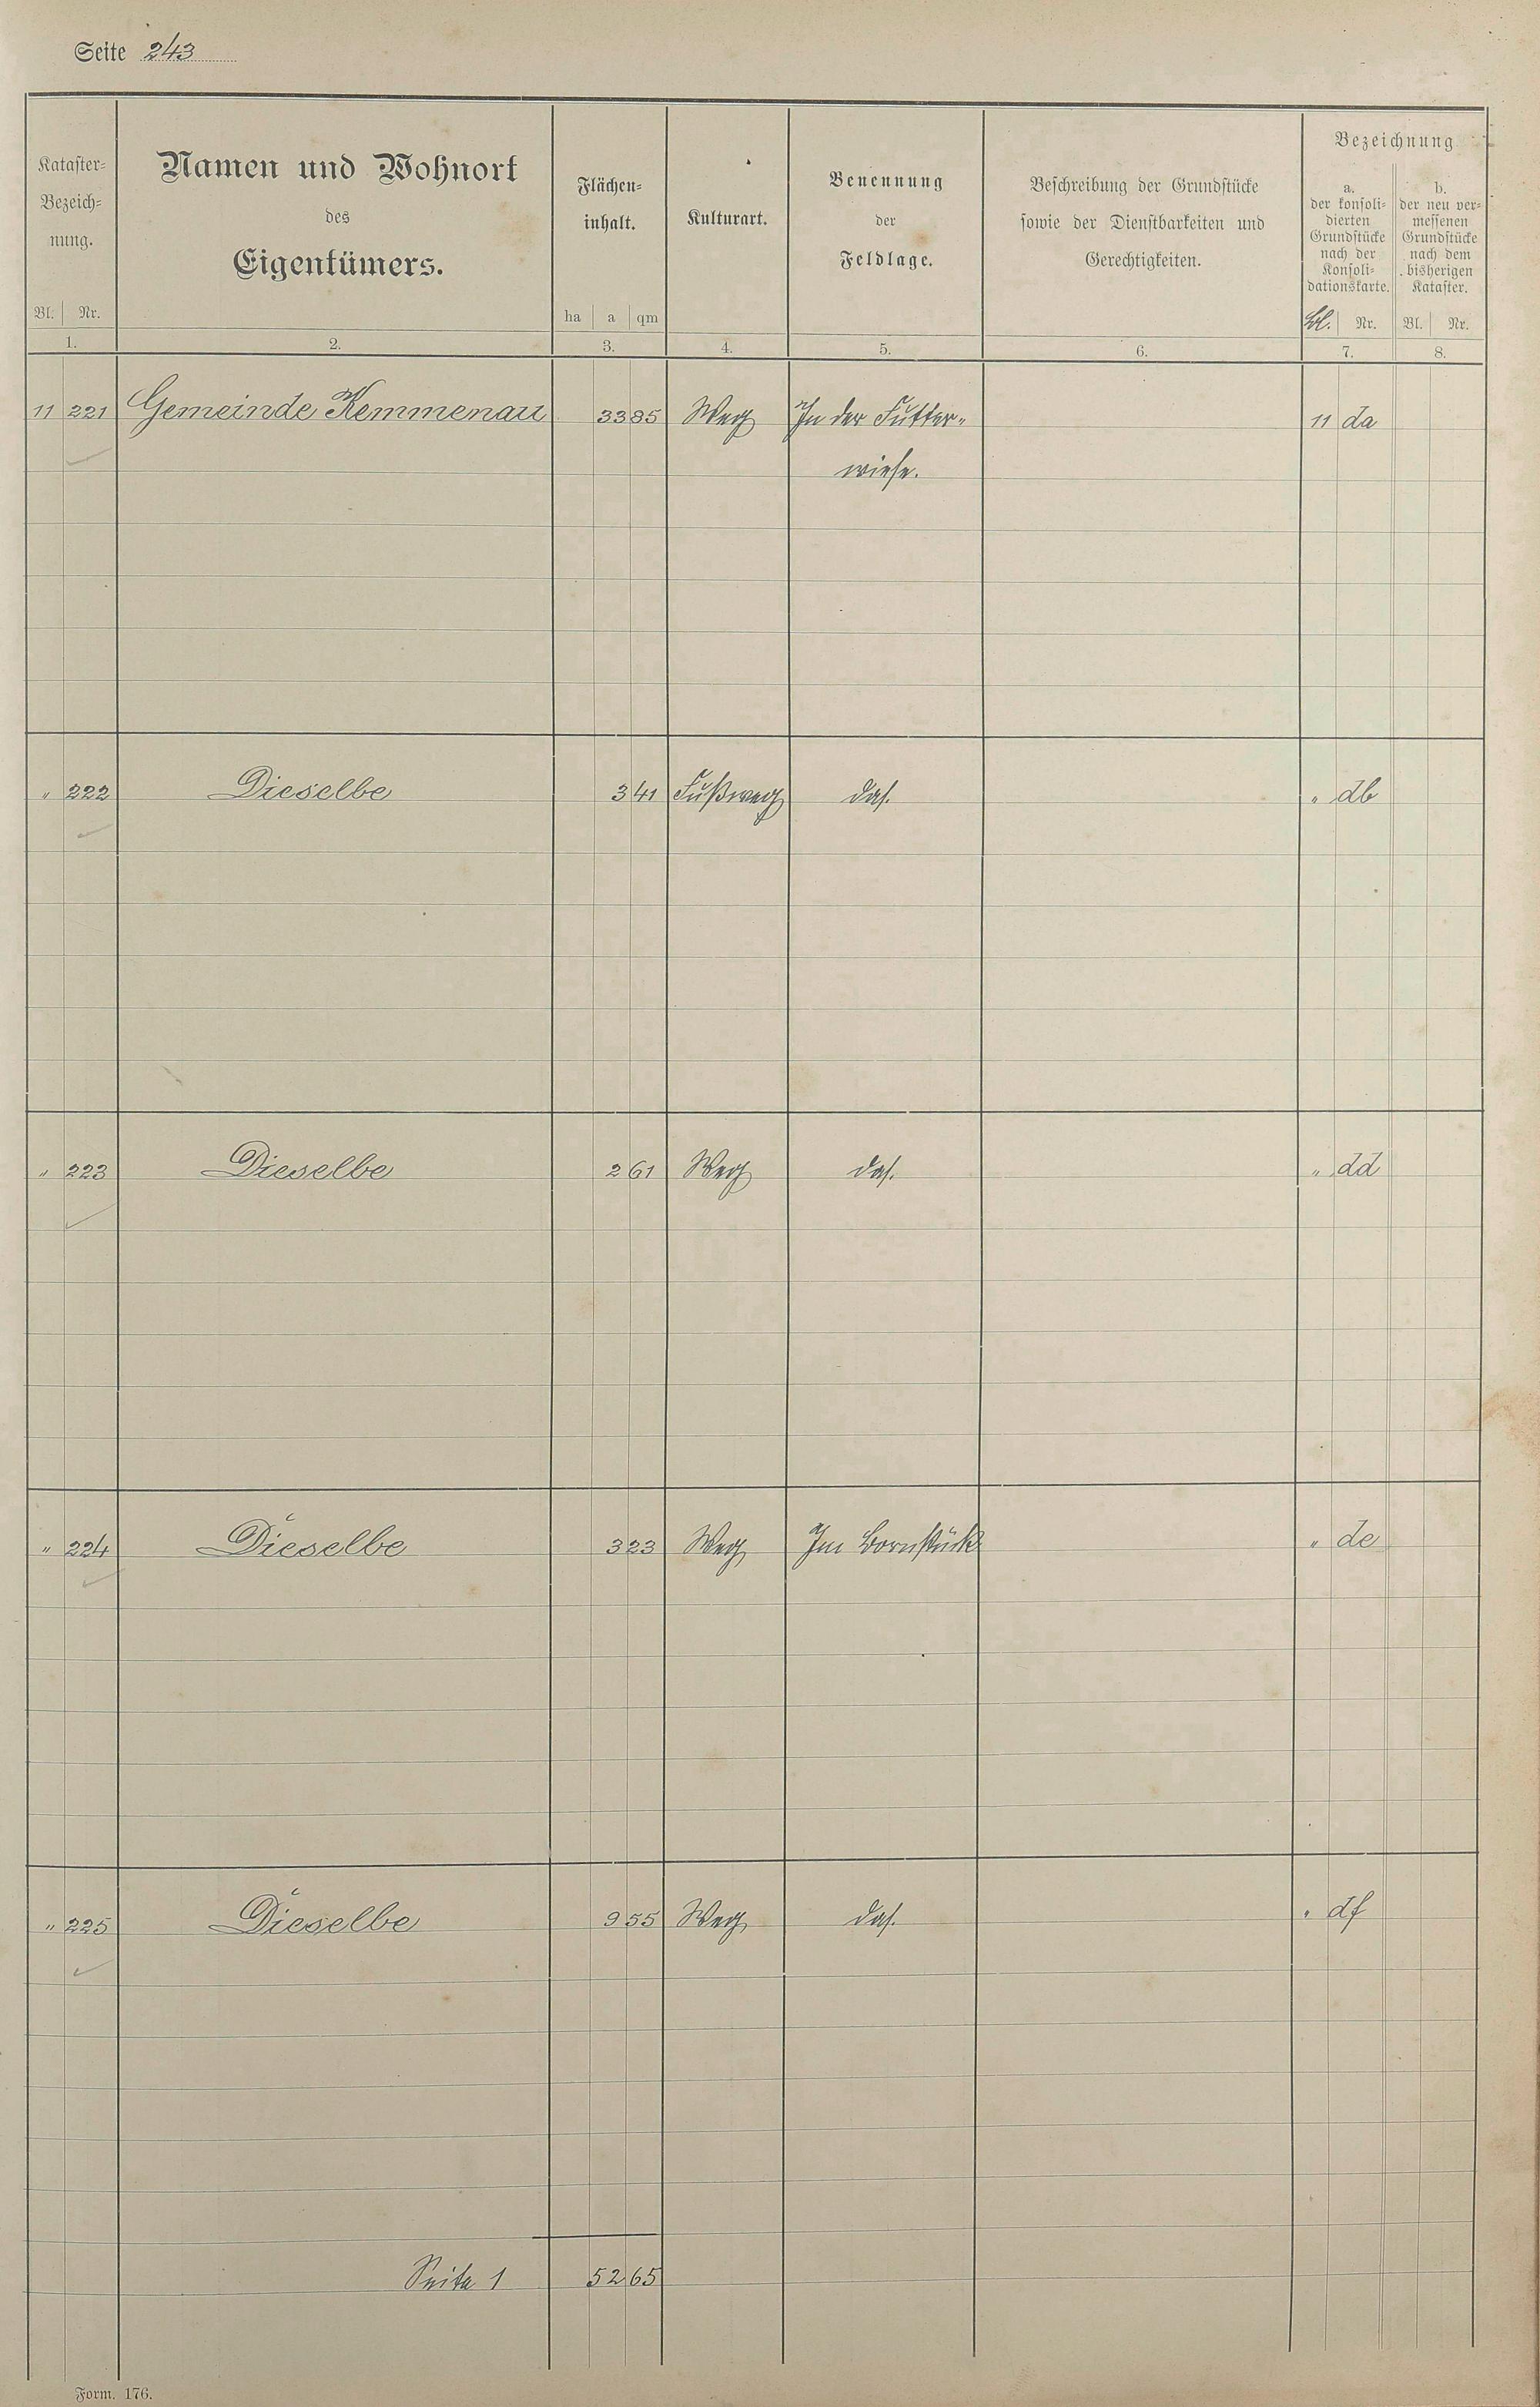 Seite 243
Kataster=
Bezeich=
nung.
Bl. Nr.
1.
Namen und Wohnort
des
Eigentümers.
2.
Flächen=
inhalt.
ha a qm
3.
Kulturart.
4.
Benennung
der
Feldlage.
5.
Beschreibung der Grundstücke
sowie der Dienstbarkeiten und
Gerechtigkeiten.
6.
Bezeichnung
a.
der konsoli=
dierten
Grundstücke
nach der
Konsoli=
dationskarte.
Bl. Nr.
7.
b.
der neu ver=
messenen
Grundstücke
nach dem
bisherigen
Kataster.
Bl. Nr.
8.
11 221 Gemeinde Kemmenau 33 85 Weg In der Futter- 11 da
wiese.
" 222 Dieselbe 3 41 Fußweg das. " db
" 223 Dieselbe 2 61 Weg das. " dd
" 224 Dieselbe 3 23 Weg Im Bornstück " de
" 225 Dieselbe 9 55 Weg das. " df
Seite 1 52 65
Form. 176.